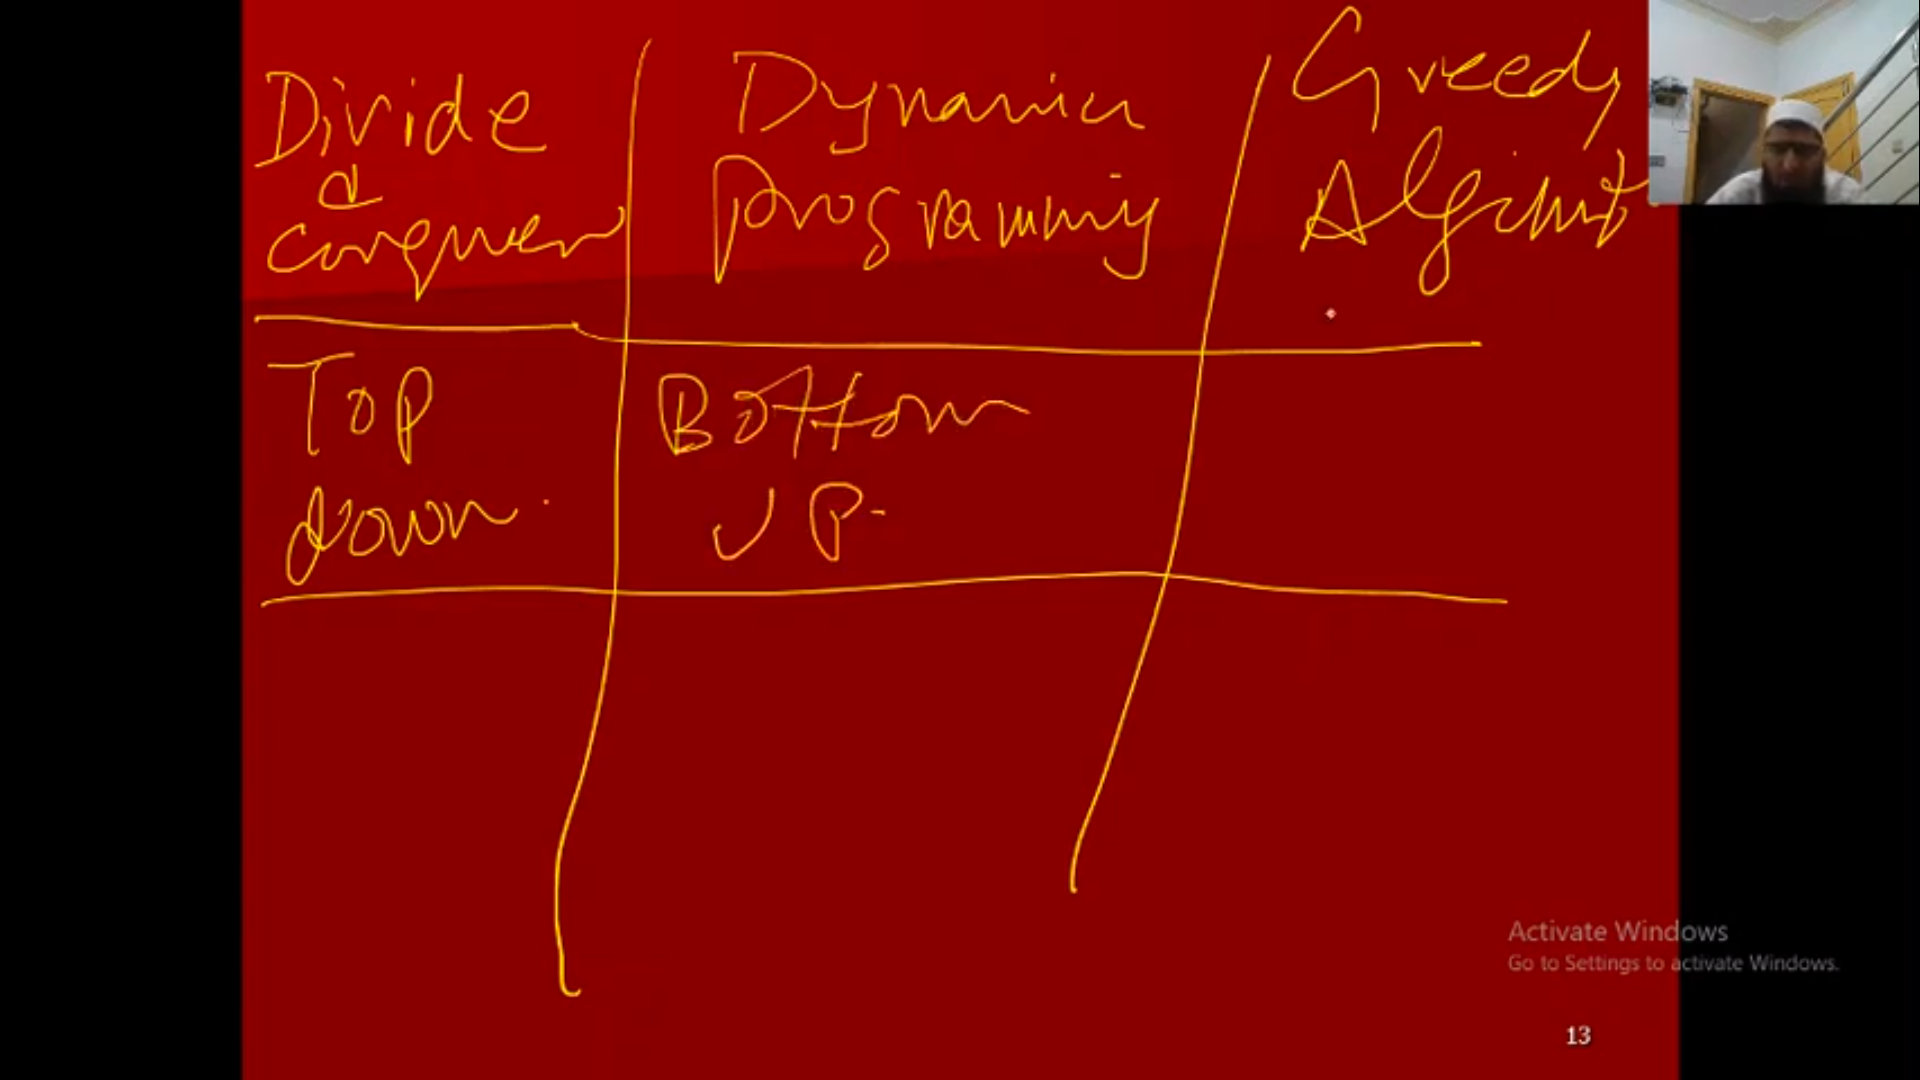 Divide
&
conquer
Dynamic
Programming
Greedy
Algorithm
Top
down.
Bottom
UP-
Activate Windows
Go to Settings to activate Windows.
13